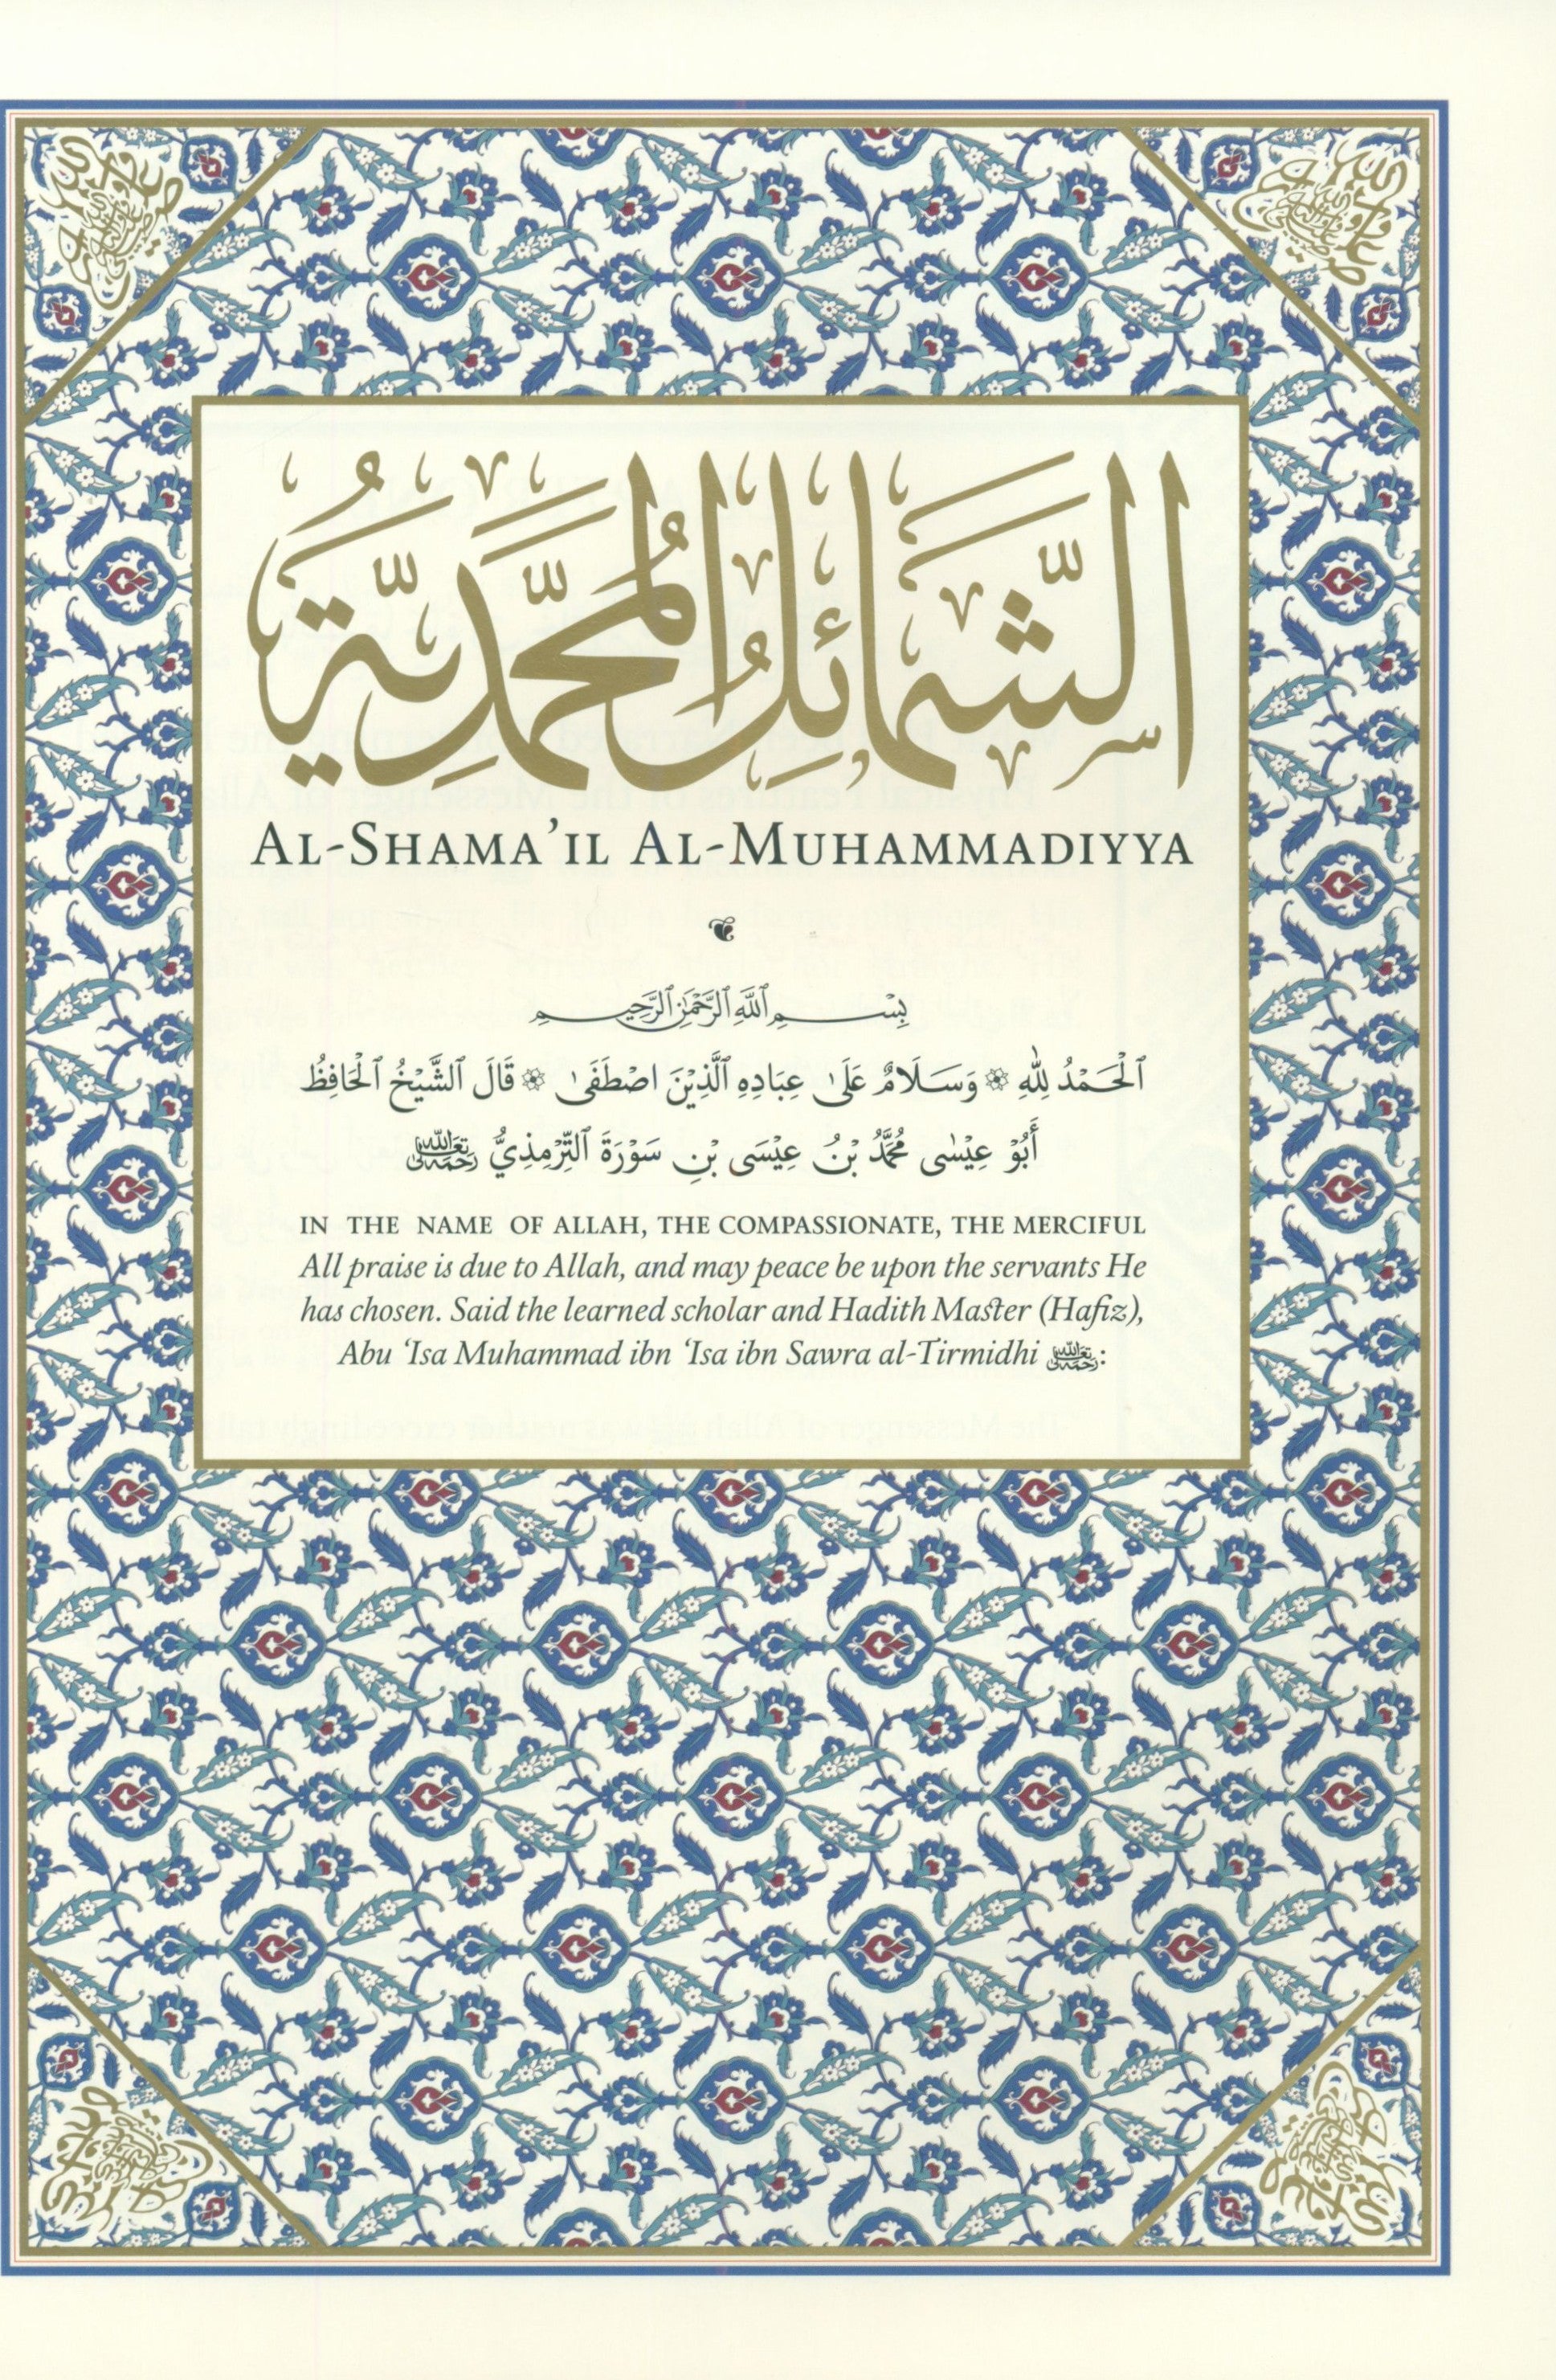 الشَّمَائِلُ المُحَمَّدِيَّةُ
AL-SHAMA’IL AL-MUHAMMADIYYA
بِسْمِ ٱللَّهِ ٱلرَّحْمَٰنِ ٱلرَّحِيمِ
ٱلْحَمْدُ لِلّٰهِ ۞ وَسَلَامٌ عَلَىٰ عِبَادِهِ ٱلَّذِيْنَ اصْطَفَىٰ ۞ قَالَ ٱلشَّيْخُ ٱلْحَافِظُ
أَبُوْ عِيْسٰى مُحَمَّدُ بْنُ عِيْسَى بْنِ سَوْرَةَ ٱلتِّرْمِذِيُّ رَحِمَهُ اللهُ تَعَالَى
IN THE NAME OF ALLAH, THE COMPASSIONATE, THE MERCIFUL
All praise is due to Allah, and may peace be upon the servants He
has chosen. Said the learned scholar and Hadith Master (Hafiz),
Abu ‘Isa Muhammad ibn ‘Isa ibn Sawra al-Tirmidhi رَحِمَهُ اللهُ تَعَالَى: